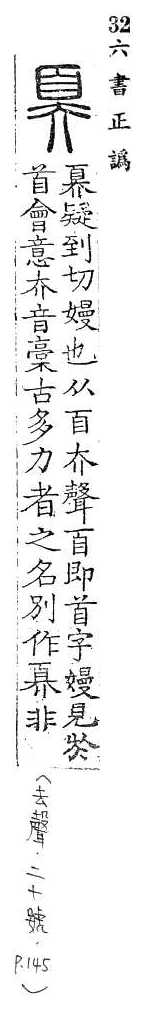 32 六書正譌
奡
奡疑到切嫚也从百夰聲百即首字嫚見於
首會意夰音稾古多力者之名別作奡非
(去聲.二十號.P.145)